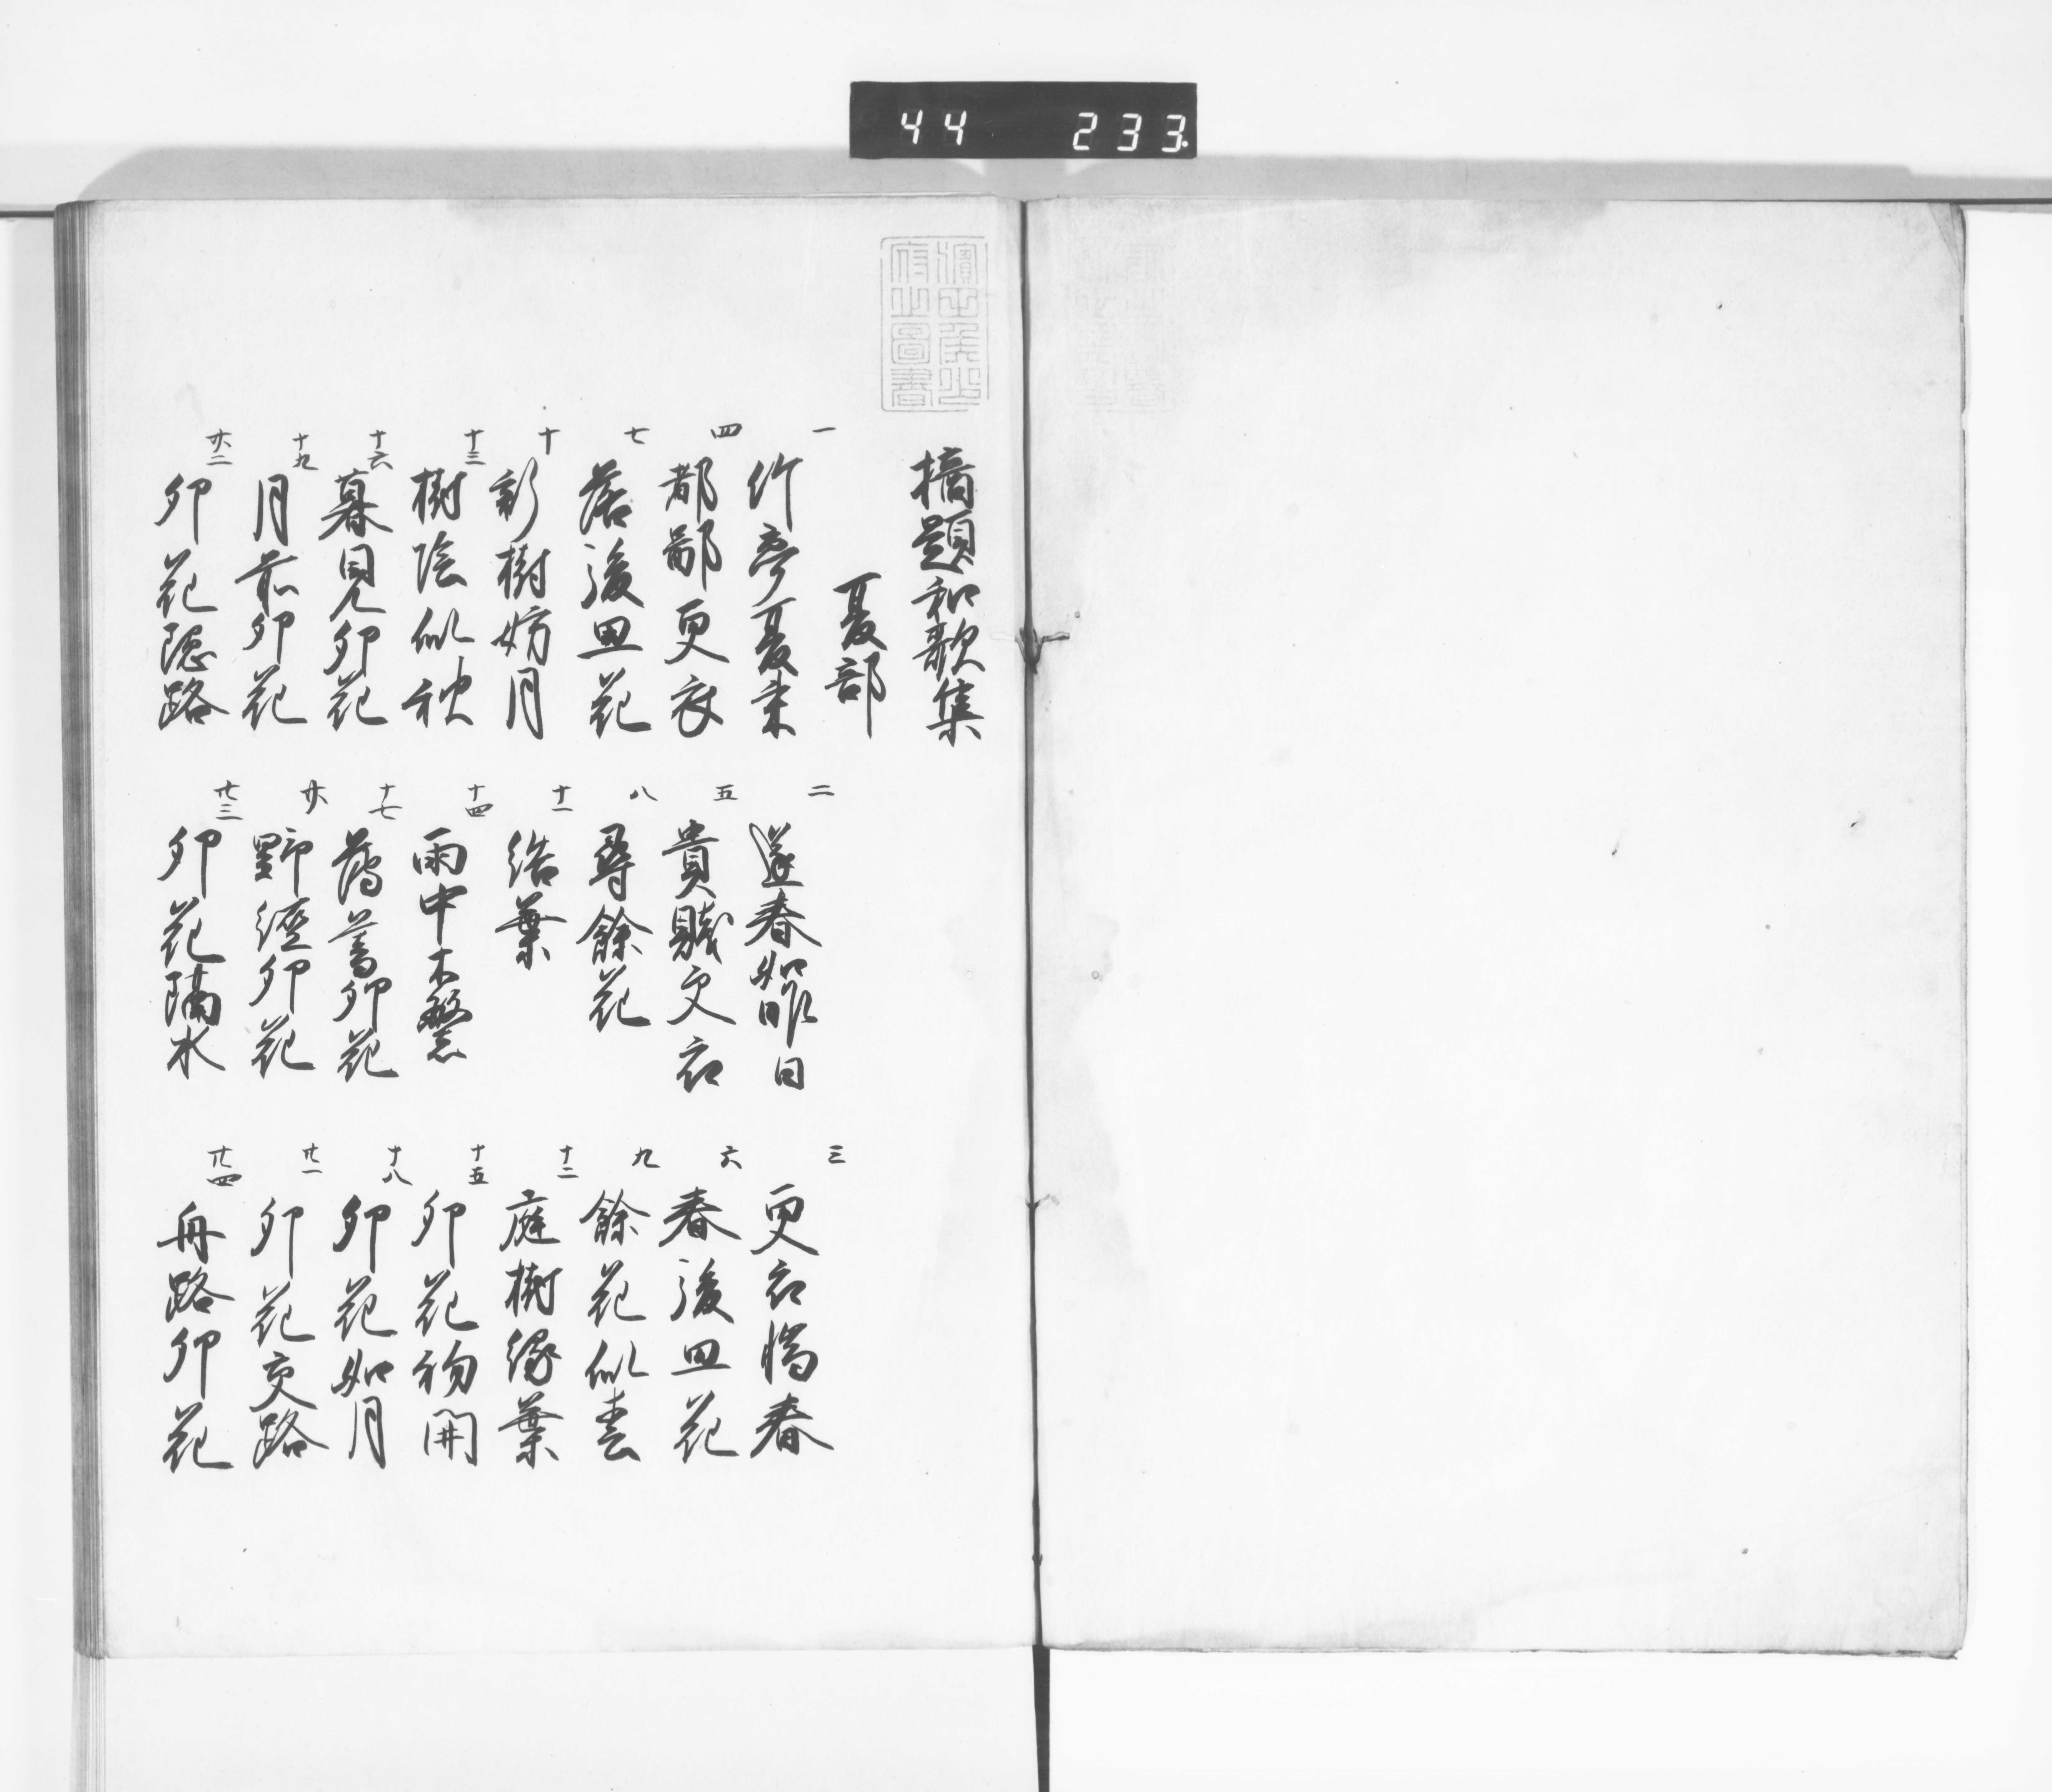 44 233
摘題和歌集
夏部
一 竹亭夏来
二 遂春如昨日
三 更衣惜春
四 都鄙更衣
五 貴賤更衣
六 春後思花
七 落後思花
八 尋餘花
九 餘花似春
十 新樹妨月
十一 結葉
十二 庭樹緑葉
十三 樹陰似秋
十四 雨中木繁
十五 卯花初開
十六 暮見卯花
十七 薄暮卯花
十八 卯花如月
十九 月前卯花
廿 野経卯花
廿一 卯花夾路
廿二 卯花隠路
廿三 卯花隔水
廿四 舟路卯花